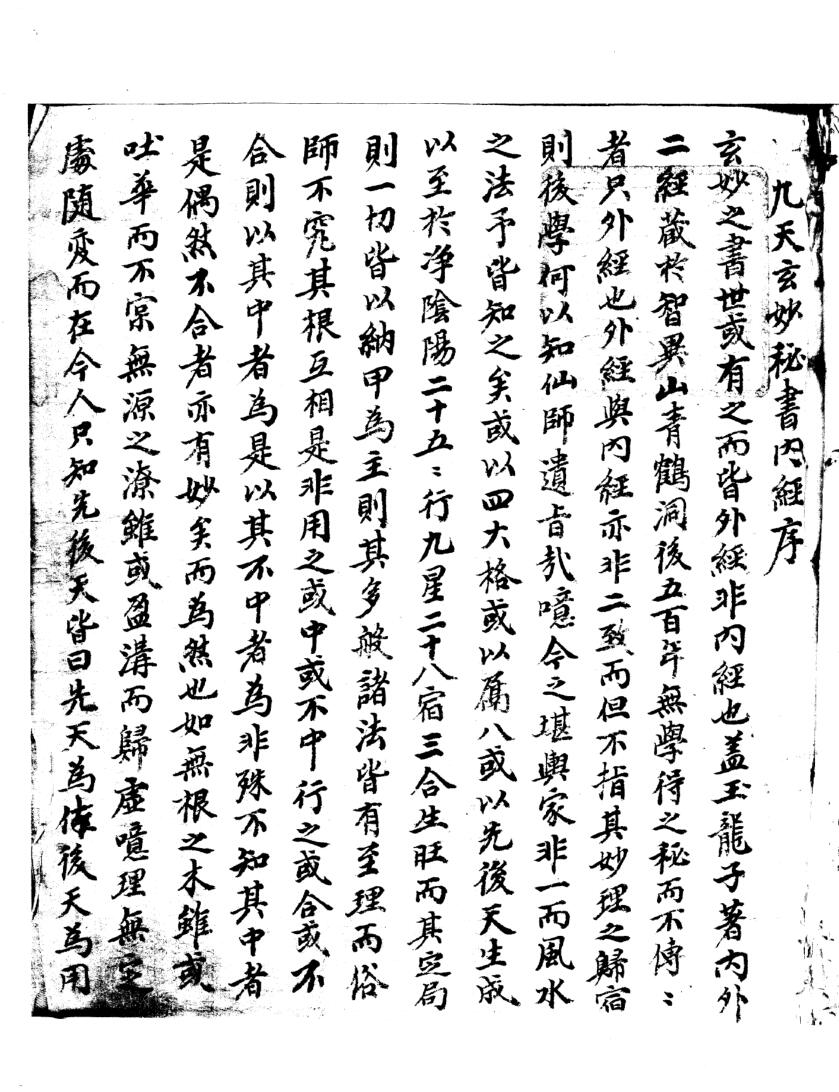 九天玄妙秘書內經序
玄妙之書世或有之而皆外經非內經也盖玉龍子著內外
二經藏於智異山青鶴洞後五百年無學得之秘而不傳〻
者只外經也外經與內經亦非二致而但不指其妙理之歸宿
則後學何以知仙師遺旨㢤噫今之堪輿家非一而風水
之法予皆知之矣或以四大格或以屬八或以先後天生成
以至於净陰陽二十五〻行九星二十八宿三合生旺而其定局
則一切皆以納甲為主則其多般諸法皆有至理而俗
師不究其根互相是非用之或中或不中行之或合或不
合則以其中者為是以其不中者為非殊不知其中者
是偶然不合者亦有妙矣而為然也如無根之木雖或
吐華而不宲無源之潦雖或盈溝而歸虛噫理無定
處随变而在今人只知先後天皆曰先天為体後天為用